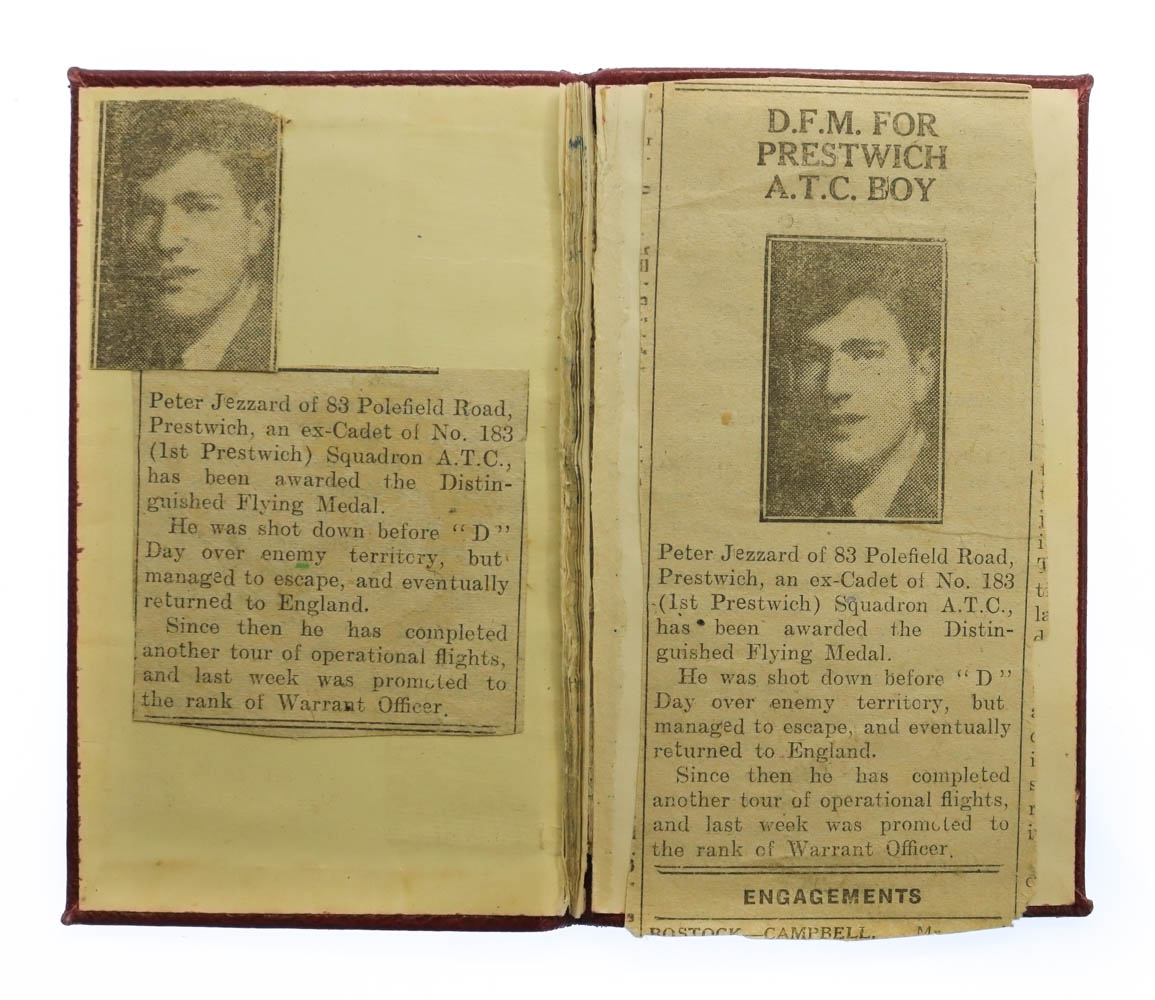 Peter Jezzard of 83 Polefield Road,
Prestwich, an ex-Cadet of No. 183
(1st Prestwich) Squadron A.T.C.,
has been awarded the Distin-
guished Flying Medal.
He was shot down before "D"
Day over enemy territory, but
managed to escape, and eventually
returned to England.
Since then he has completed
another tour of operational flights,
and last week was promoted to
the rank of Warrant Officer.
D.F.M. FOR
PRESTWICH
A.T.C. BOY
Peter Jezzard of 83 Polefield Road,
Prestwich, an ex-Cadet of No. 183
(1st Prestwich) Squadron A.T.C.,
has been awarded the Distin-
guished Flying Medal.
He was shot down before "D"
Day over enemy territory, but
managed to escape, and eventually
returned to England.
Since then he has completed
another tour of operational flights,
and last week was promoted to
the rank of Warrant Officer.
ENGAGEMENTS
BOSTOCK—CAMPBELL.